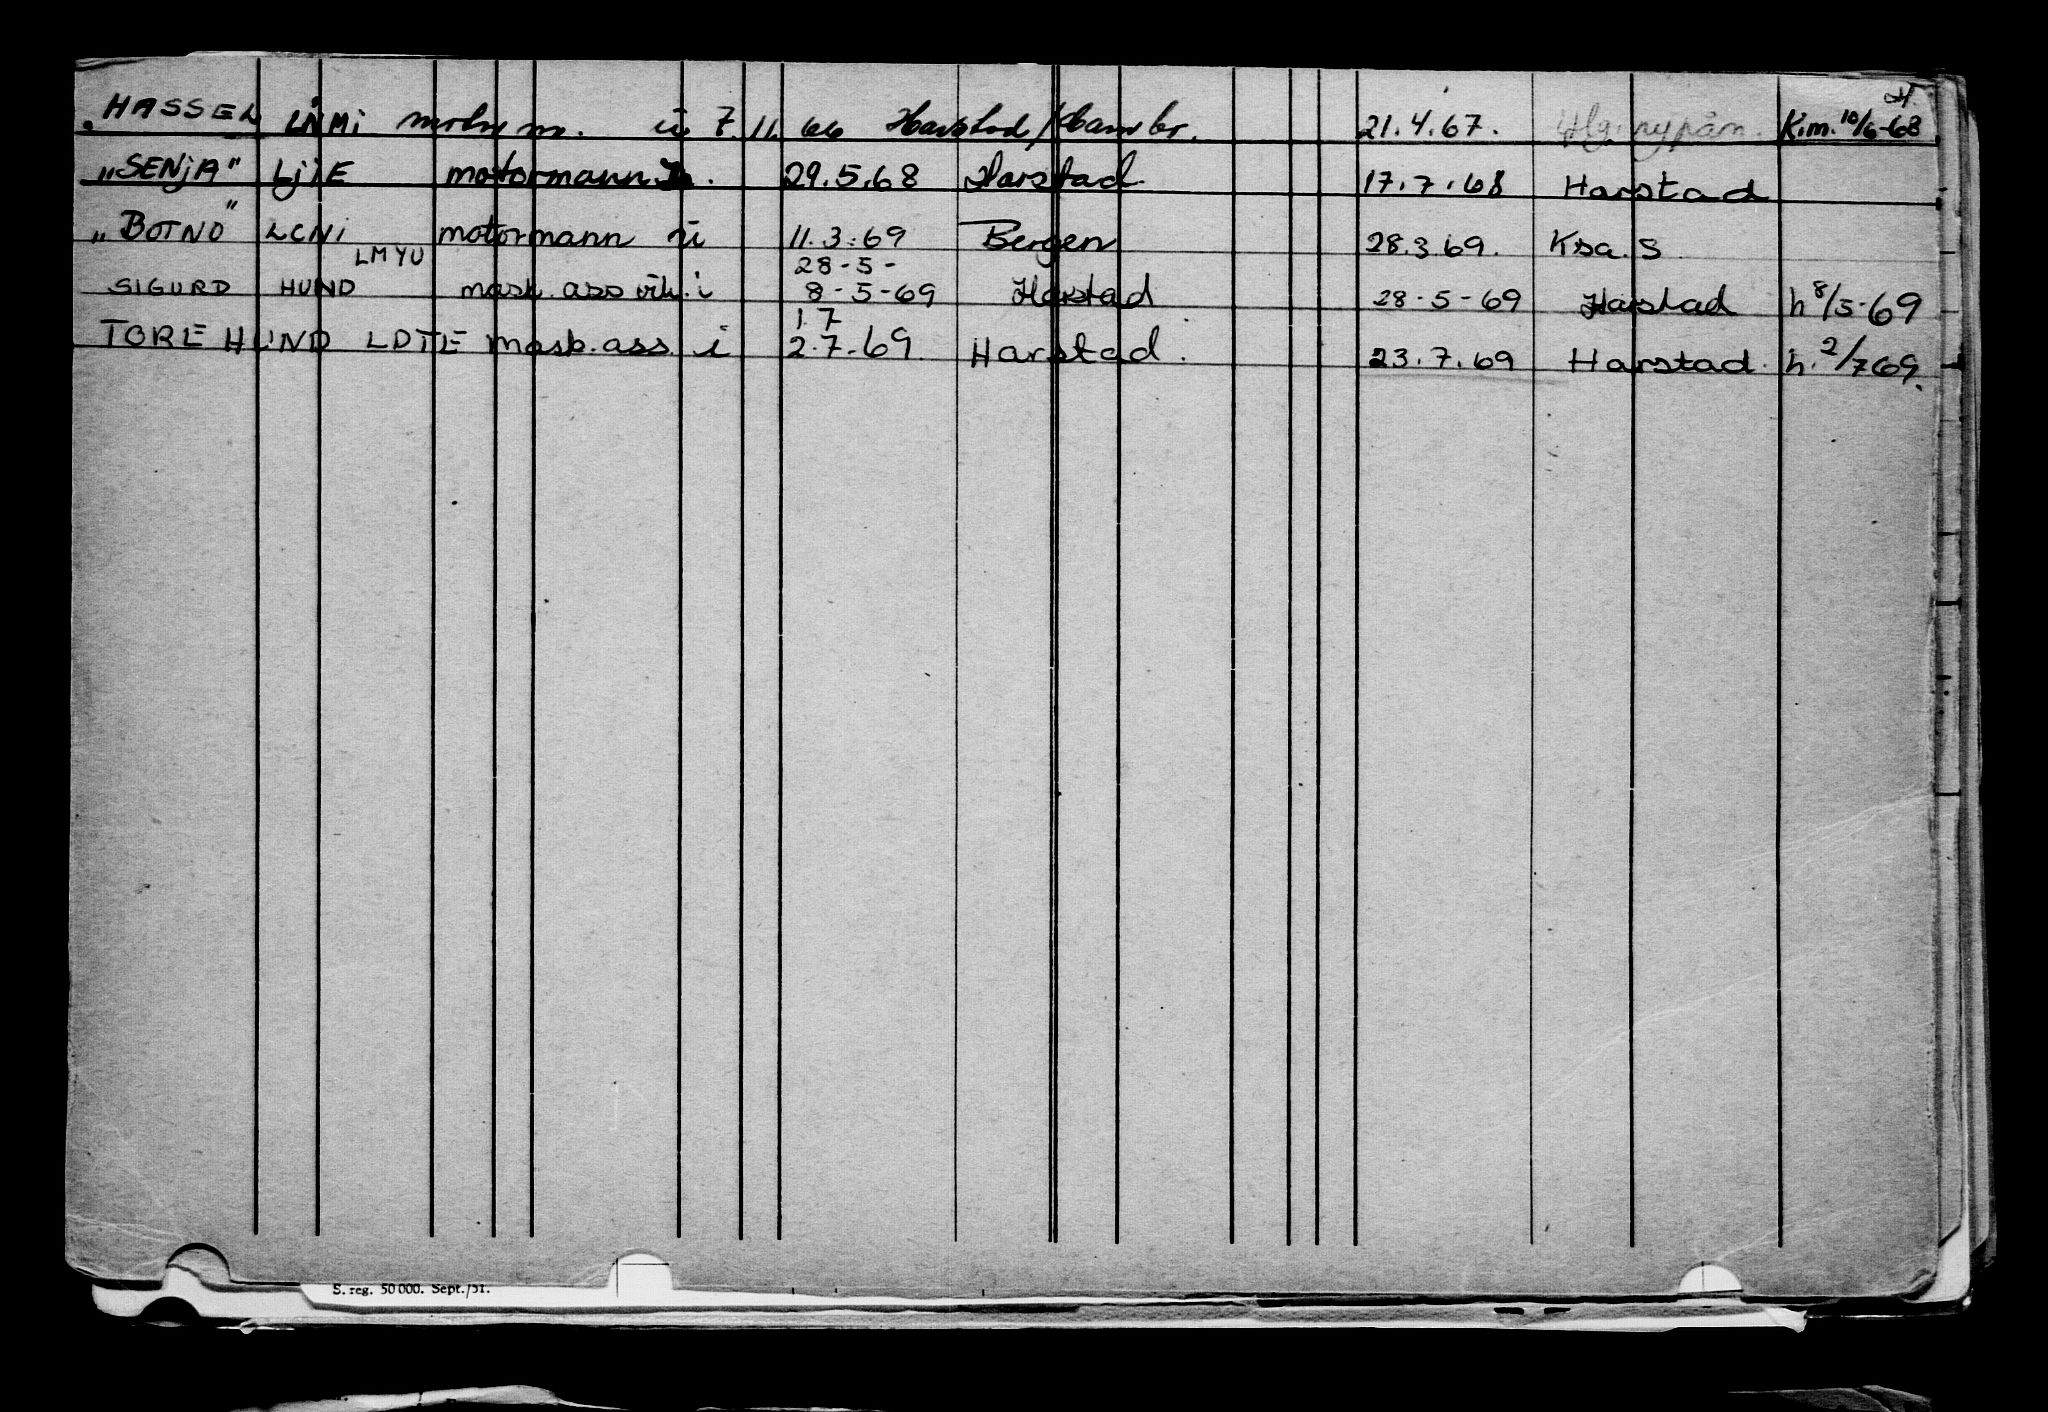 HASSEL LNMi motorm. ü 7.11.66 Harstad / 21.4.67. K.m. 10/6-68
"SENjA" LjiE motormann 29.5.68 Harstad. 17.7.68 Harstad
"BOTNO" LCNi motormann ü 11.3.69 Bergen 28.3.69. Ksa. S
LMYU 28-5-
SIGURD HUND mask. ass vik. i 8-5-69 Harstad 28-5-69 Harstad h 8/5-69
1.7
TORE HUND LDTE mask. ass. i 2.7.69. Harstad. 23.7.69 Harstad. h. 2/7 69.
S. reg. 50 000. Sept./51.